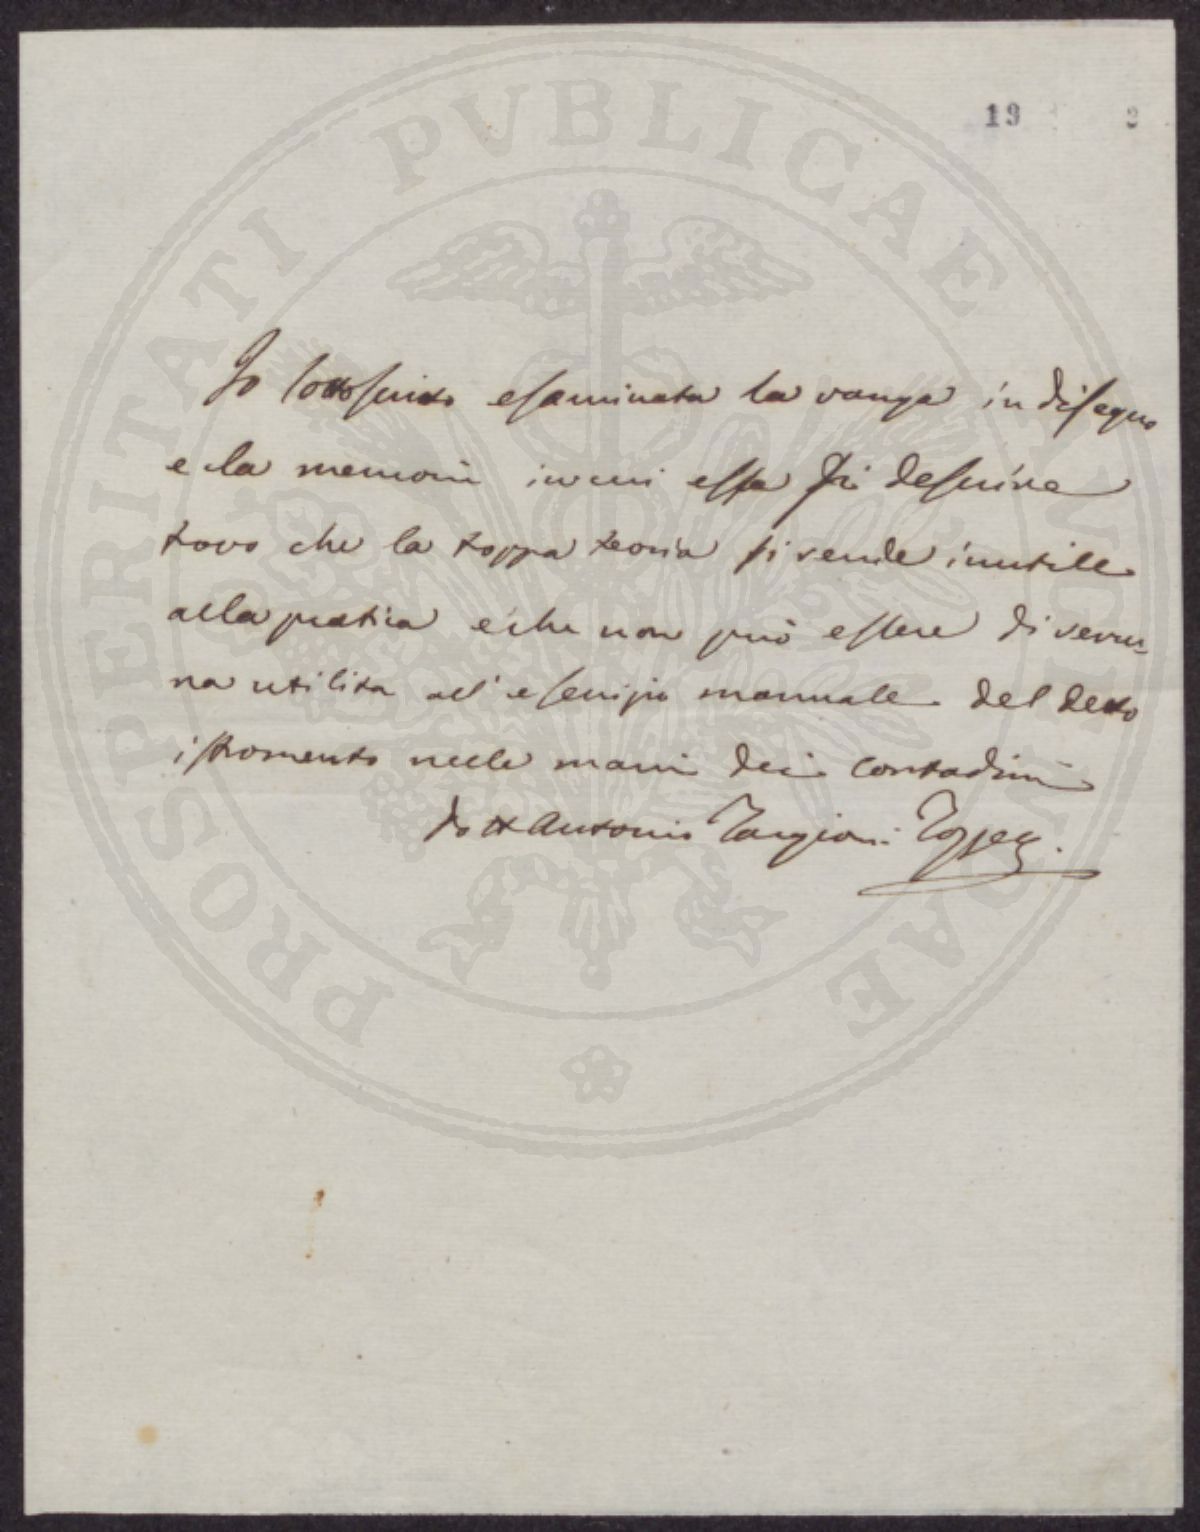 19 2
Io sottoscritto esaminata la vanga in disegno
e la memoria in cui essa si descrive
trovo che la troppa teoria si rende inutile
alla pratica e che non può essere di veru-
na utilita all'esercizio manuale del detto
istromento nelle mani dei contadini
Dott Antonio Targioni Tozzetti.
PROSPERITATI PVBLICAE AVGENDAE